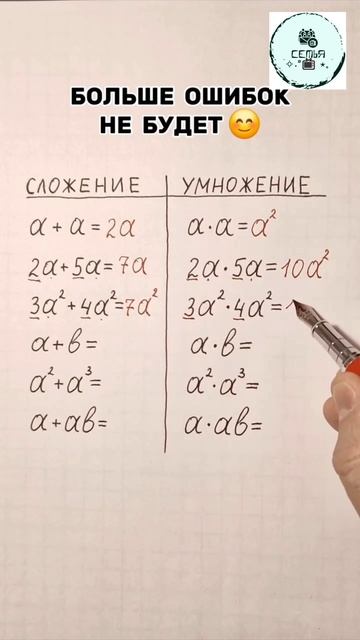 СЕМЬЯ
БОЛЬШЕ ОШИБОК
НЕ БУДЕТ 😊
СЛОЖЕНИЕ УМНОЖЕНИЕ
a + a = 2a a · a = a²
2a + 5a = 7a 2a · 5a = 10a²
3a² + 4a² = 7a² 3a² · 4a² =
a + b = a · b =
a² + a³ = a² · a³ =
a + ab = a · ab =